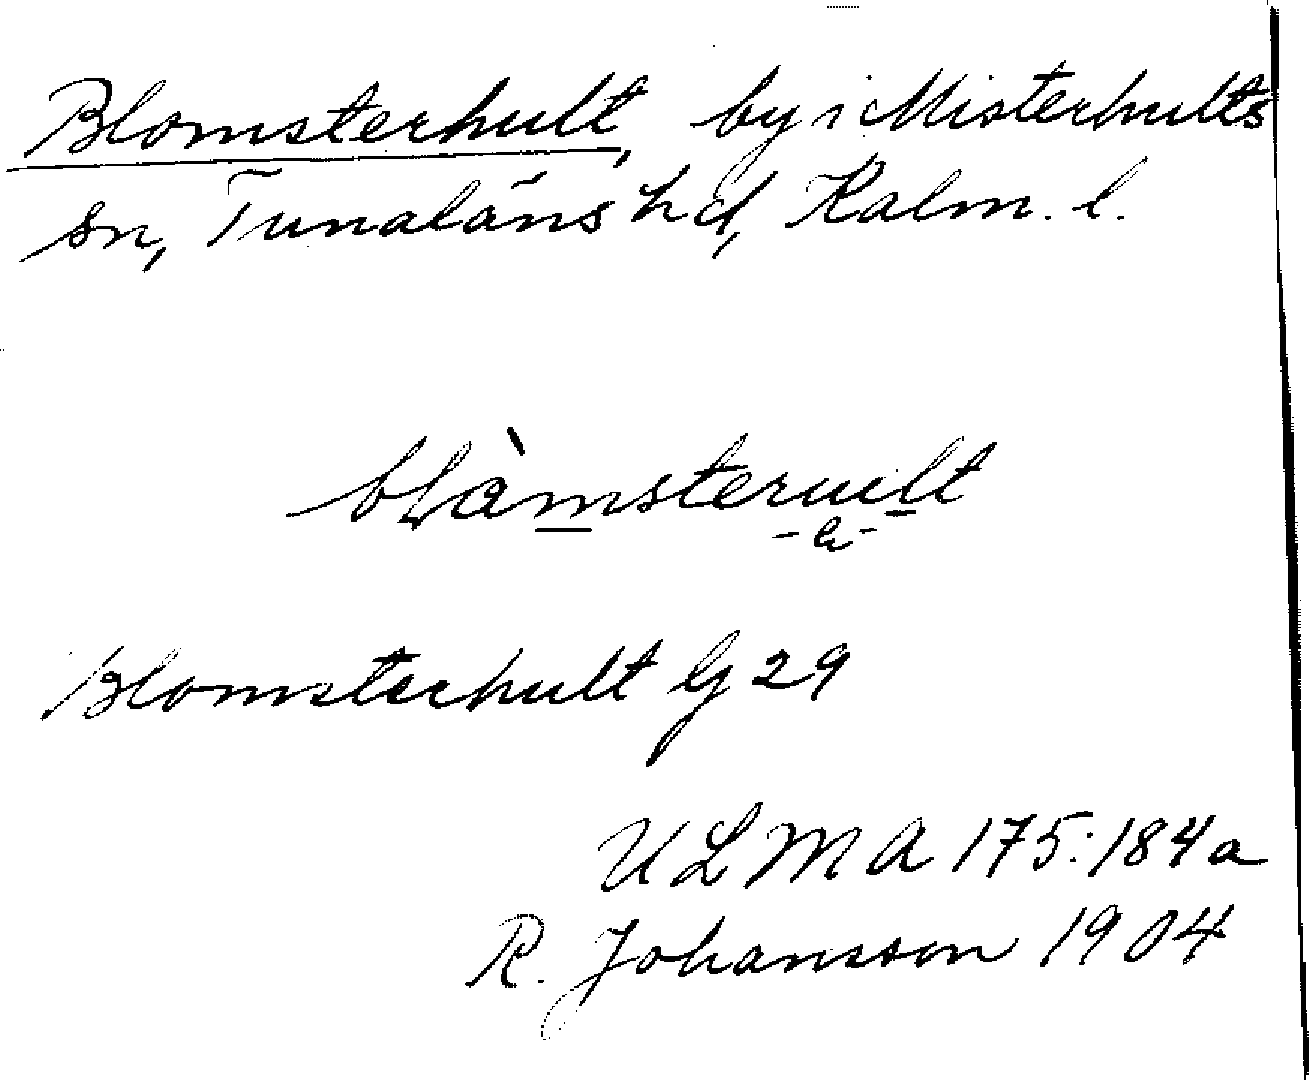 Blomsterhult, by i Misterhults
sn, Tunaläns hd, Kalm. l.
blàmsterult
Blomsterhult G 29
ULMA 175:184a
R. Johansson 1904